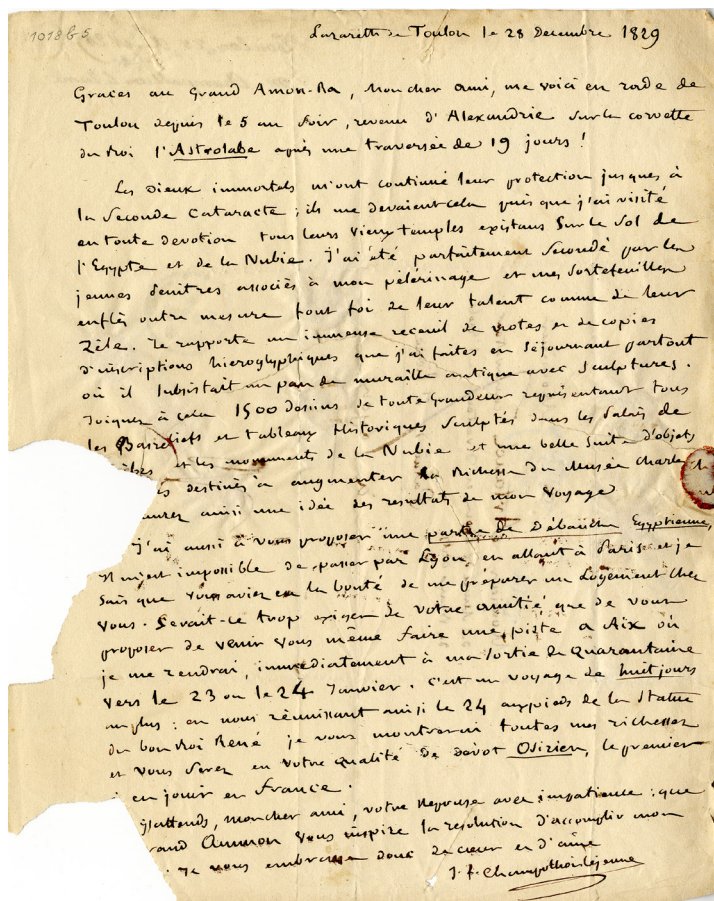 1018 G 5
Lazareth de Toulon le 28 Decembre 1829
Graces au Grand Amon-Ra, Mon cher ami, me voici en rade de
Toulon depuis le 5 au soir, revenu d'Alexandrie sur la corvette
du Roi l'Astrolabe après une traversée de 19 jours !
Les Dieux immortels m'ont continué leur protection jusques à
la Seconde Cataracte ; ils me devaient cela puis que j'ai visité
en toute devotion tous leurs vieux temples existans sur le sol de
l'Egypte et de la Nubie. J'ai été parfaitement secondé par les
jeunes peintres associés à mon pélérinage et mes portefeuilles
enflés outre mesure font foi de leur talent comme de leur
Zèle. Je rapporte un immense recueil de notes et de copies
d'inscriptions hieroglyphiques que j'ai faites en séjournant partout
où il subsistait un pan de muraille antique avec sculptures.
Joignez à cela 1500 Dessins de toute grandeur représentant tous
les Basreliefs et tableaux Historiques sculptés dans les Palais de
et les monuments de la Nubie et une belle suite d'objets
destinés à augmenter la Richesse du Musée Charles
aurez ainsi une idée des resultats de mon voyage
J'ai aussi à vous proposer une partie de Débauche Egyptienne,
Il m'est impossible de passer par Lyon, en allant à Paris et je
sais que vous aviez eu la bonté de me préparer un Logement chez
vous. Serait-ce trop exiger de votre amitié que de vous
proposer de venir vous même faire une piste a Aix où
je me rendrai, immédiatement à ma sortie de Quarantaine
vers le 23 ou le 24 Janvier. C'est un voyage de huit jours
au plus : en nous réunissant ainsi le 24 aux pieds de la statue
du bon Roi René je vous montrerai toutes mes richesses
et vous serez en votre qualité de dévot Osirien, le premier
en jouir en France.
J'attends, mon cher ami, votre Reponse avec impatience : que
rand Ammon vous inspire la resolution d'accomplir mon
Je vous embrasse donc de cœur et d'âme
J. F. Champollion le jeune